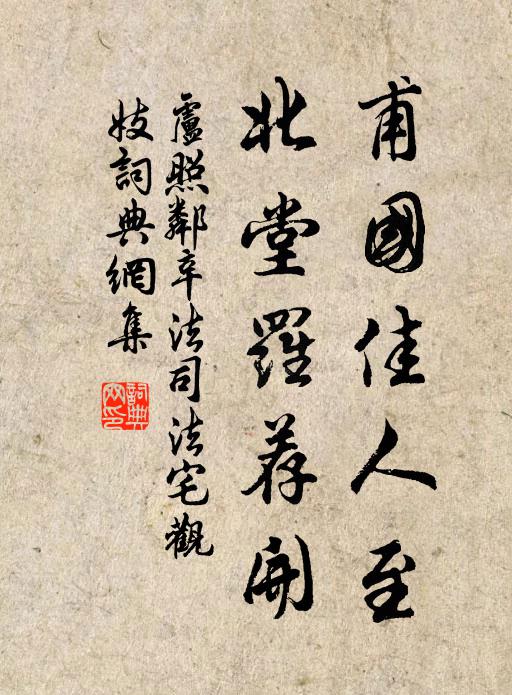 甫國佳人至
北堂羅荐開
盧照鄰辛法司法宅觀
妓詞典網集
詞典网印